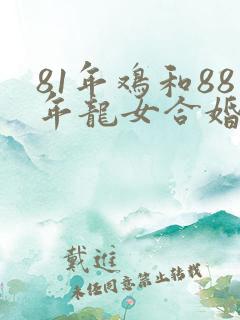 81年鳮和88
年龍女合婚
戴進
未经同意禁止转载